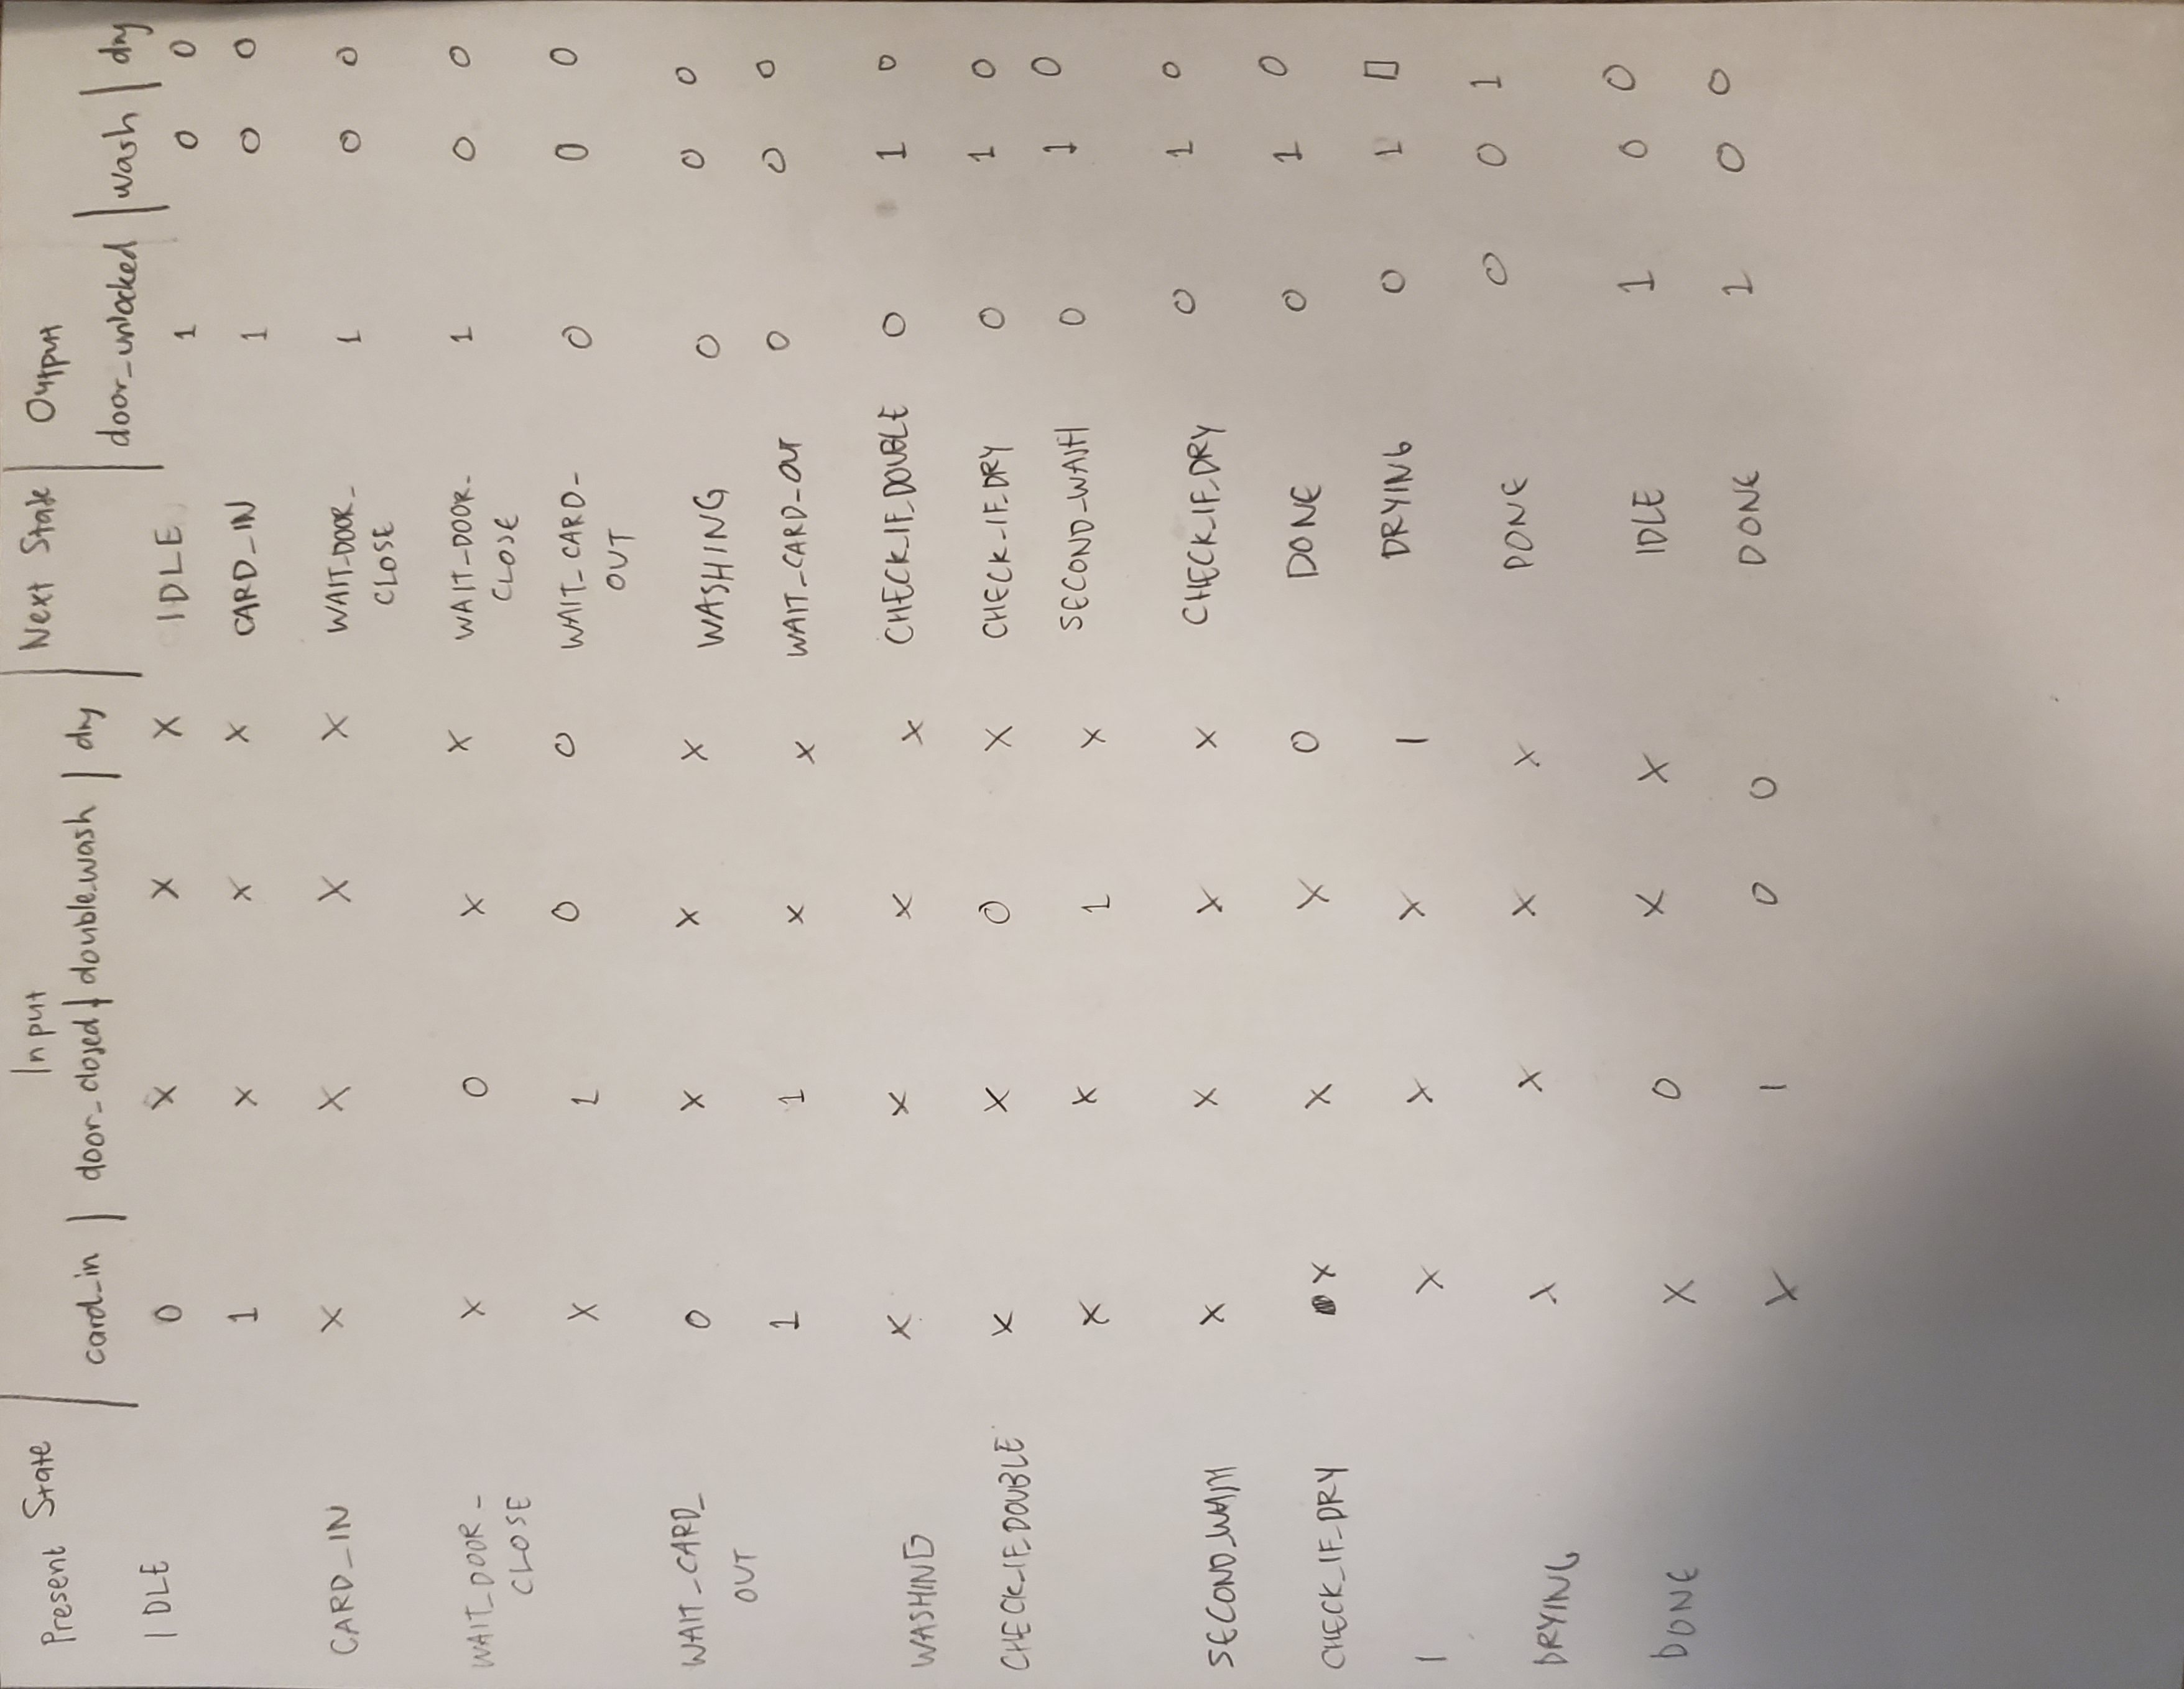 Present State | Input | Next State | Output
card_in | door_closed | double_wash | dry | door_unlocked | wash | dry
IDLE 0 X X X IDLE 1 0 0
1 X X X CARD_IN 1 0 0
CARD_IN X X X X WAIT_DOOR_ 1 0 0
CLOSE
WAIT_DOOR_ X 0 X X WAIT_DOOR_ 1 0 0
CLOSE CLOSE
X 1 0 0 WAIT_CARD_ 0 0 0
OUT
WAIT_CARD_ 0 X X X WASHING 0 0 0
OUT
1 1 X X WAIT_CARD_OUT 0 0 0
WASHING X X X X CHECK_IF_DOUBLE 0 1 0
CHECK_IF_DOUBLE X X 0 X CHECK_IF_DRY 0 1 0
X X 1 X SECOND_WASH 0 1 0
SECOND_WASH X X X X CHECK_IF_DRY 0 1 0
CHECK_IF_DRY X X X 0 DONE 0 1 0
| X X X 1 DRYING 0 1 0
DRYING X X X X DONE 0 0 1
DONE X 0 X X IDLE 1 0 0
X 1 0 0 DONE 1 0 0